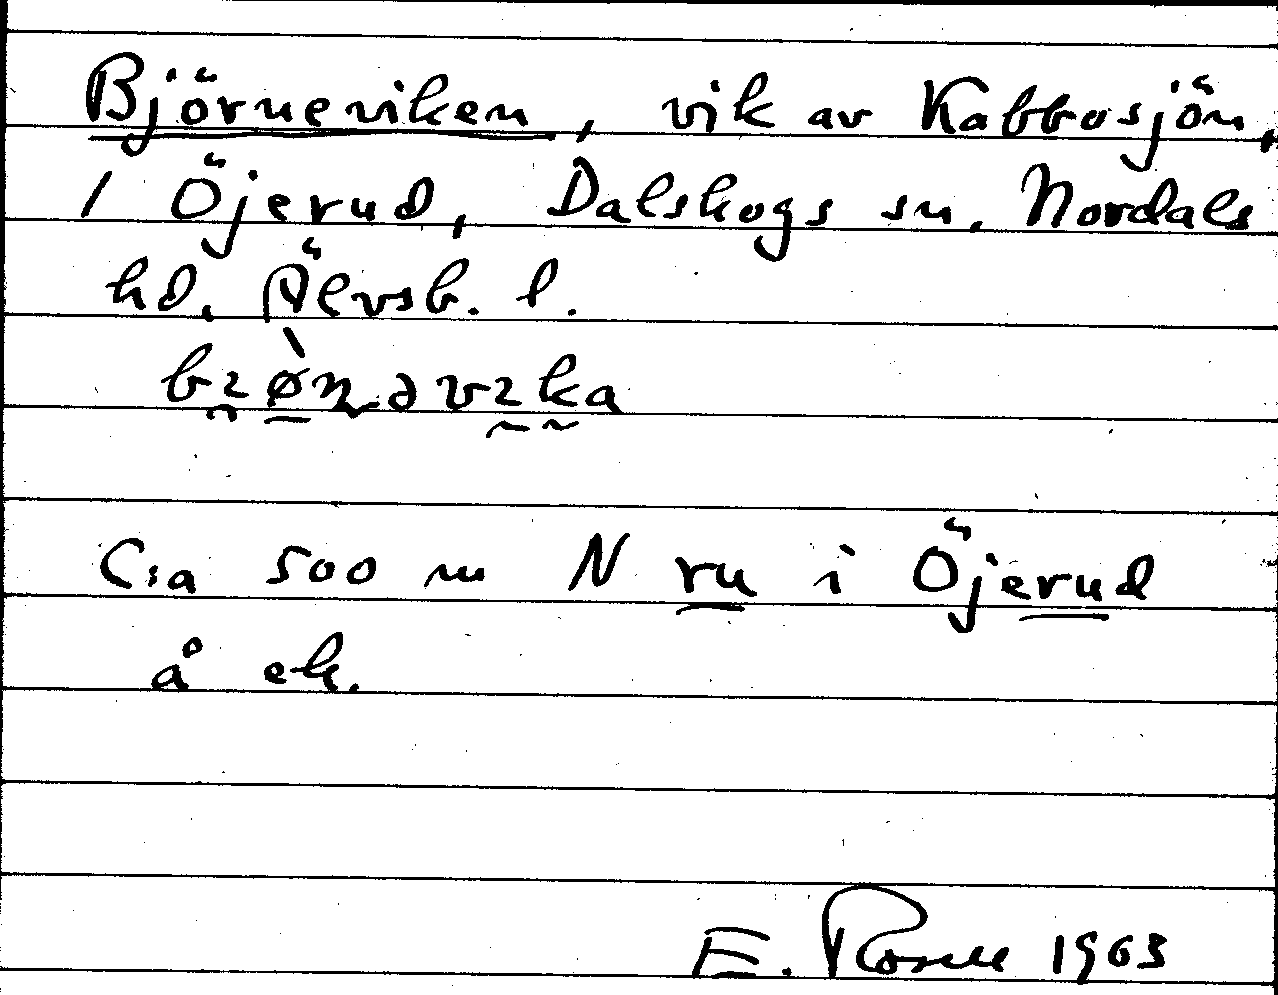 Björneviken, vik av Kabbosjön,
1 Öjerud, Dalskogs sn. Nordals
hd. Älvsb. l.
C:a 500 m N ru i Öjerud
å ek.
E. Rosell 1963